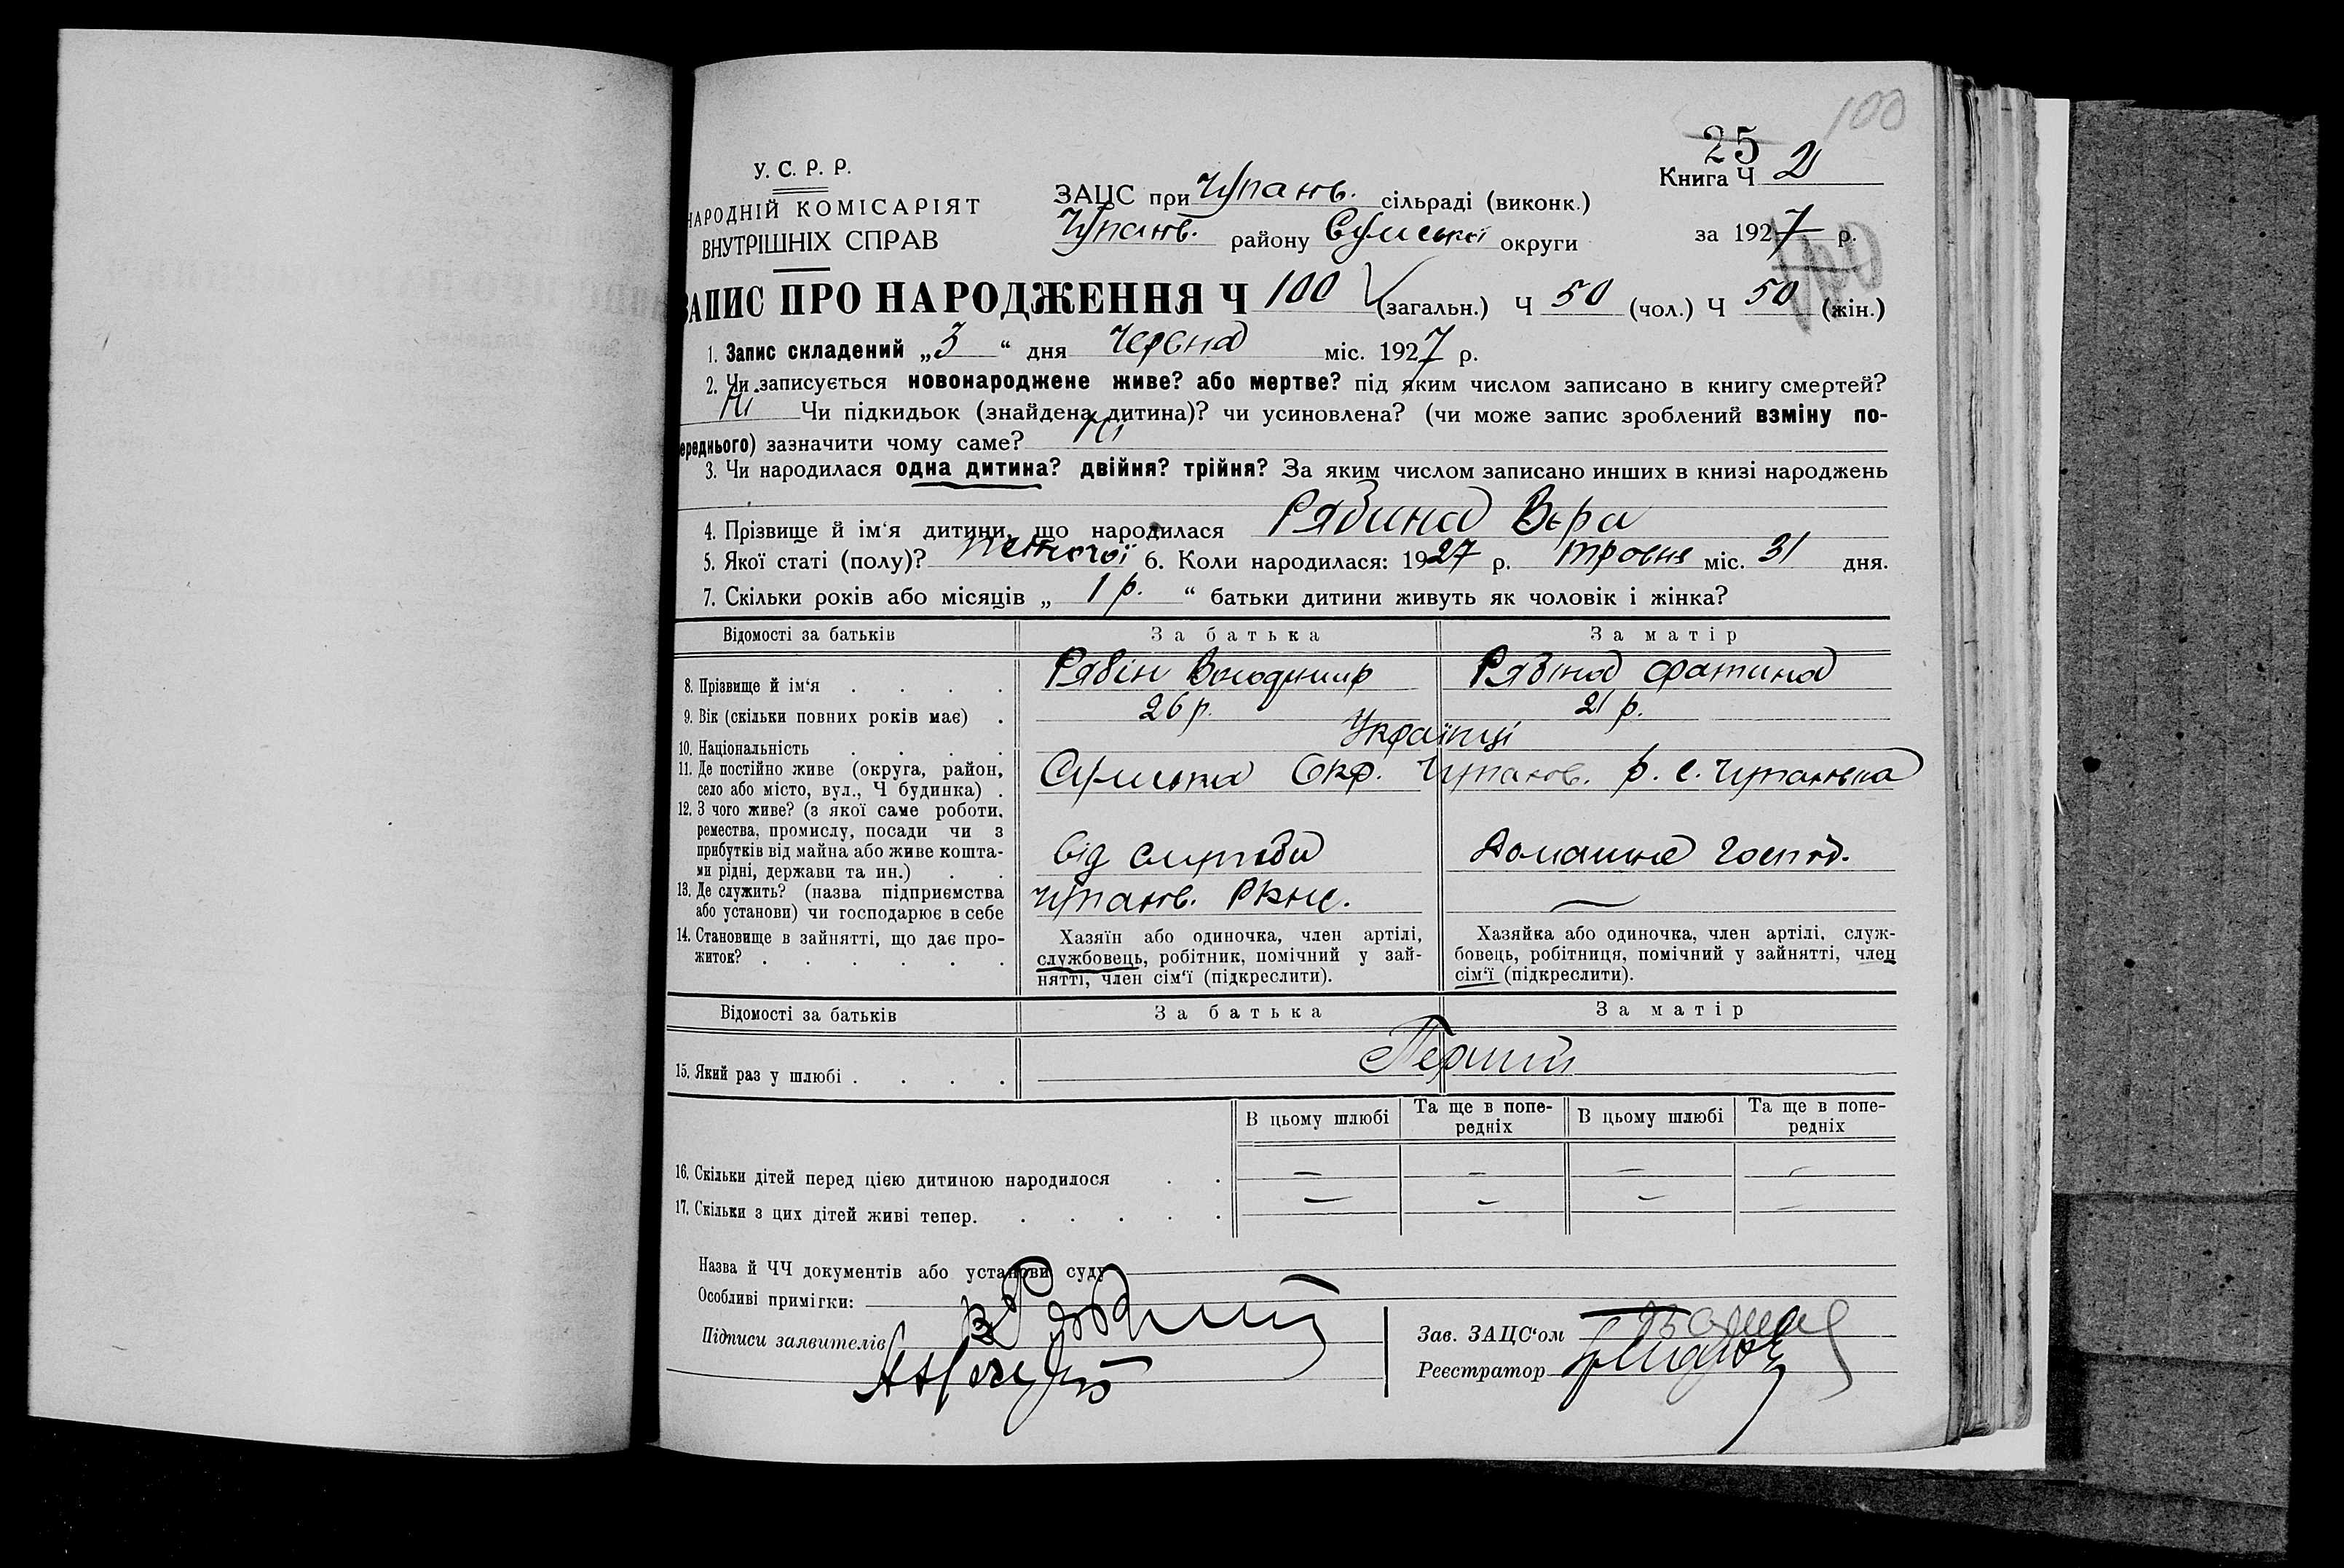 100
25
У. С. Р. Р.
Книга Ч 2
НАРОДНІЙ КОМІСАРІЯТ
ЗАЦС при Чупахів. сільраді (виконк.)
ВНУТРІШНІХ СПРАВ
Чупахів. району Сумської округи
за 1927 р.
ЗАПИС ПРО НАРОДЖЕННЯ Ч 100 (загальн.) Ч 50 (чол.) Ч 50 (жін.)
1. Запис складений „3“ дня Червня міс. 1927 р.
2. Чи записується новонароджене живе? або мертве? під яким числом записано в книгу смертей?
Ні Чи підкидьок (знайдена дитина)? чи усиновлена? (чи може запис зроблений взміну по-
ереднього) зазначити чому саме? Ні
3. Чи народилася одна дитина? двійня? трійня? За яким числом записано инших в книзі народжень
4. Прізвище й ім‘я дитини, що народилася Рябина Вєра
5. Якої статі (полу)? жіночої 6. Коли народилася: 1927 р. травня міс. 31 дня.
7. Скільки років або місяців „ 1 р. “ батьки дитини живуть як чоловік і жінка?
Відомості за батьків За батька За матір
8. Прізвище й ім‘я . . . . Рябін Володимир Рябіна Фатина
9. Вік (скільки повних років має) . 26 р. 21 р.
10. Національність . . . . Українці
11. Де постійно живе (округа, район,
село або місто, вул., Ч будинка) . Сумська Окр. Чупахів. р. с. Чупахівка
12. З чого живе? (з якої саме роботи,
ремества, промислу, посади чи з
прибутків від майна або живе кошта-
ми рідні, держави та ин.) . . Від служби Домашнє господ.
13. Де служить? (назва підприємства
або установи) чи господарює в себе Чупахів. —
14. Становище в зайнятті, що дає про-
житок? . . . . . .
Хазяїн або одиночка, член артілі,
службовець, робітник, помічний у зай-
нятті, член сім‘ї (підкреслити).
Хазяйка або одиночка, член артілі, служ-
бовець, робітниця, помічний у зайнятті, член
сім‘ї (підкреслити).
Відомості за батьків За батька За матір
15. Який раз у шлюбі . . . . Перший
В цьому шлюбі Та ще в попе-
редніх В цьому шлюбі Та ще в попе-
редніх
16. Скільки дітей перед цією дитиною народилося . . — — — —
17. Скільки з цих дітей живі тепер. . . . . . — — — —
Назва й ЧЧ документів або установи суду
Особливі примітки:
Підписи заявителів
Зав. ЗАЦС‘ом
Реєстратор